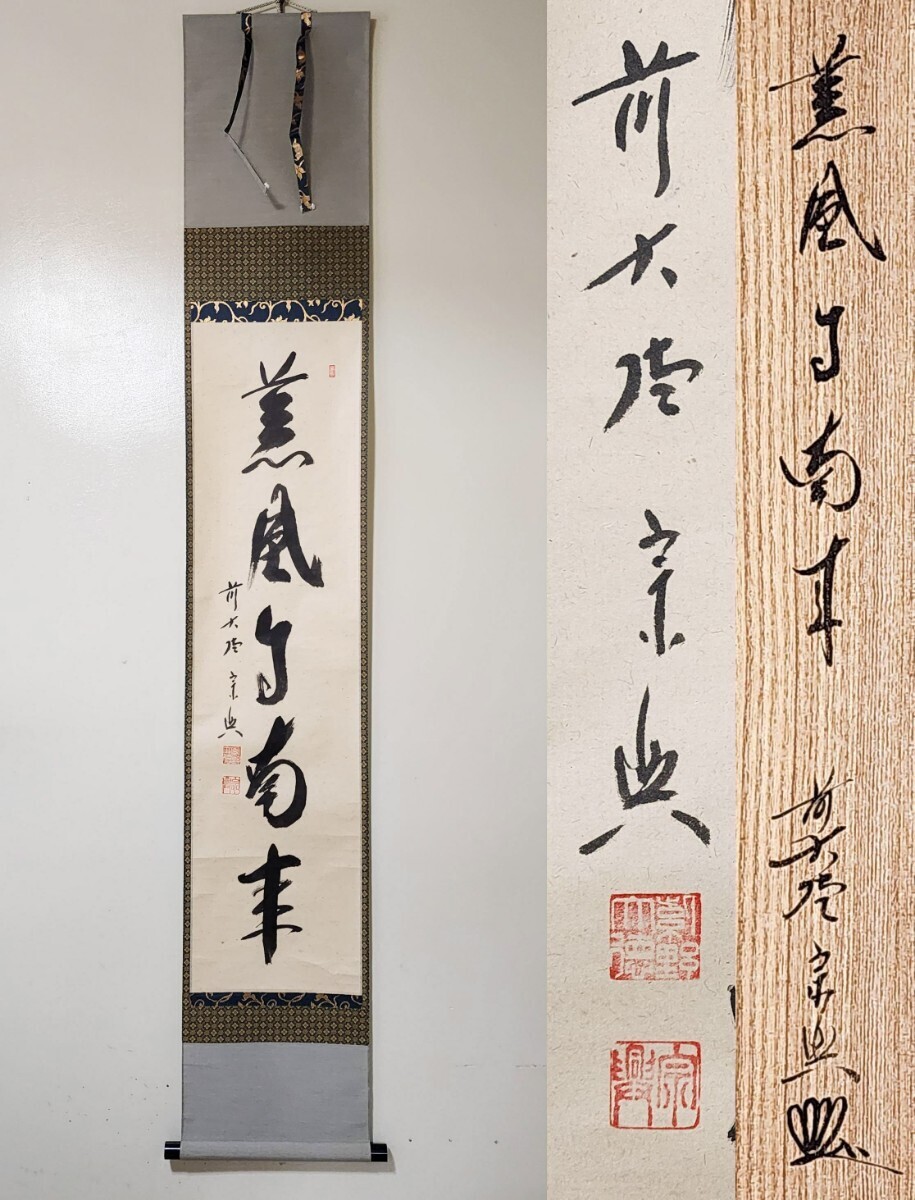 薫風自南来
前大徳 宗興
前大徳 宗興
宗興
薫風自南来
前大徳 宗興